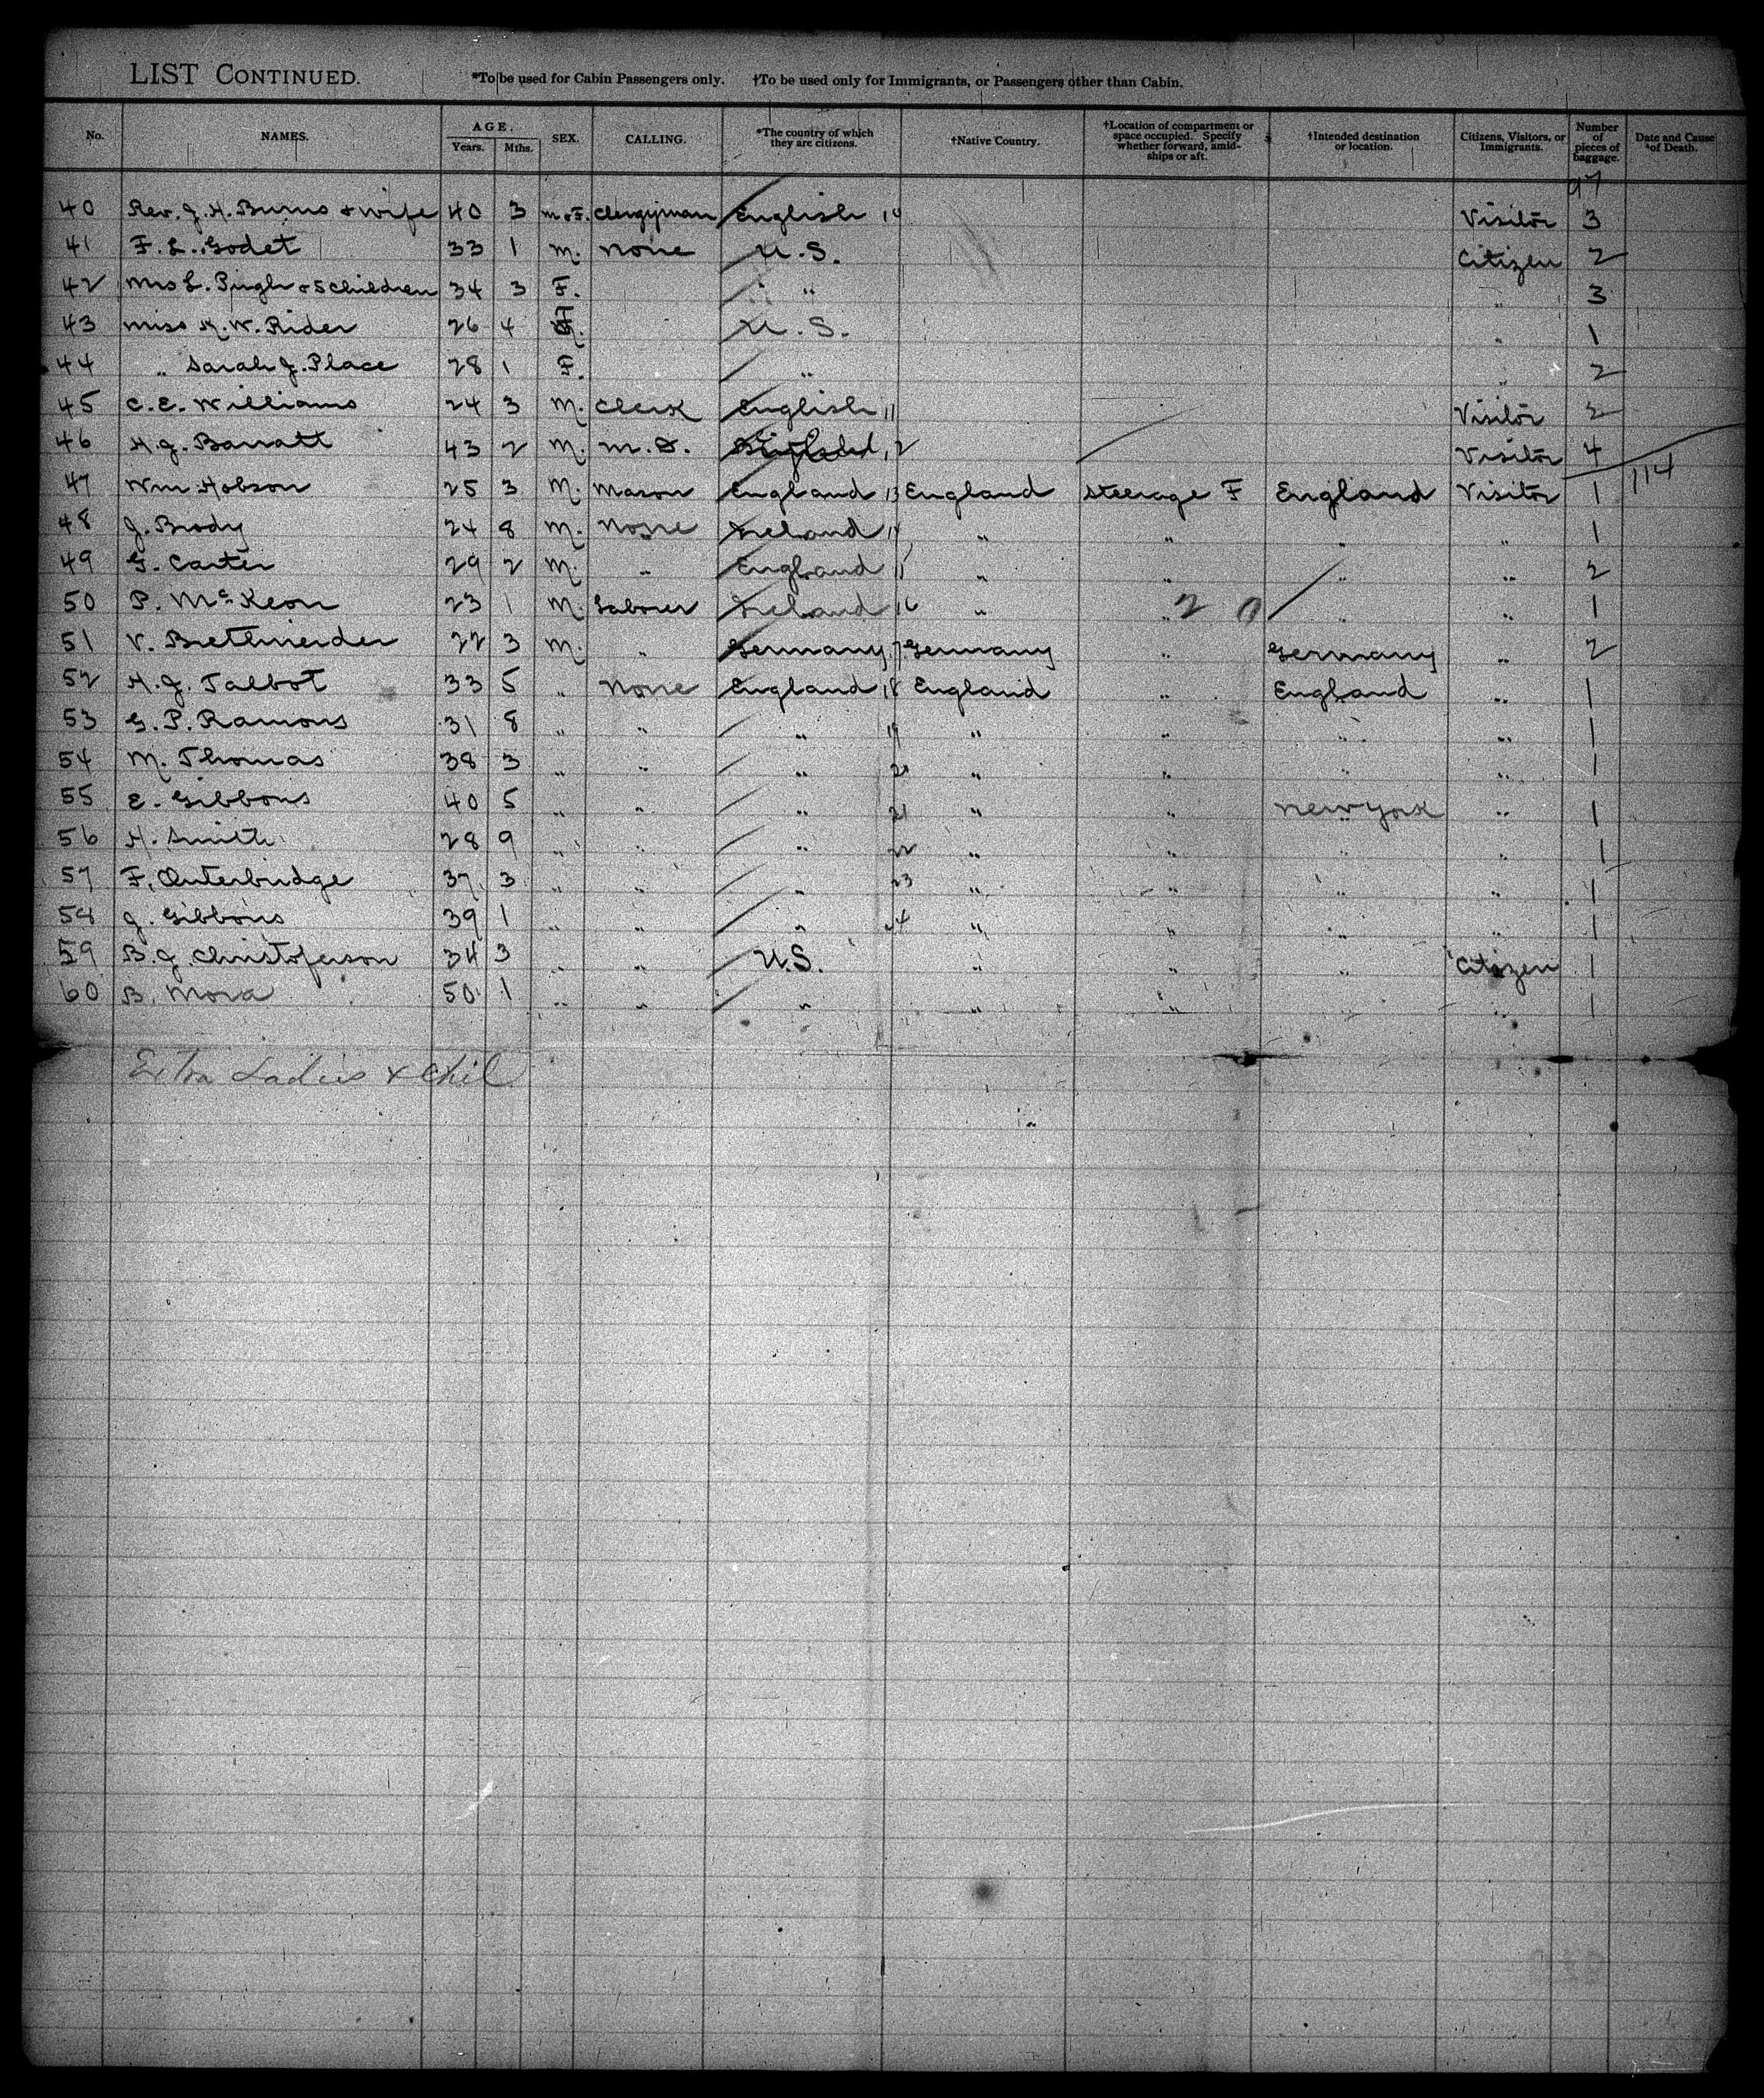 LIST CONTINUED. *To be used for Cabin Passengers only. †To be used only for Immigrants, or Passengers other than Cabin.
No. NAMES. AGE. Years. Mths. SEX. CALLING. *The country of which they are citizens. †Native Country. †Location of compartment or space occupied. Specify whether forward, amid-ships or aft. †Intended destination or location. Citizens, Visitors, or Immigrants. Number of pieces of baggage. Date and Cause of Death.
97
40 Rev. J. H. Burns & wife 40 3 m & F. Clergyman English 10 Visitor 3
41 F. L. Godet 33 1 M. None U.S. Citizen 2
42 Mrs L. Pugh & 5 children 34 3 F. " " 3
43 Miss H. W. Rider 26 4 F. U.S. " 1
44 " Sarah J. Place 28 1 F. " " 2
45 C. E. Williams 24 3 M. Clerk English 11 Visitor 2
46 H. J. Barratt 43 2 M. M.D. 12 Visitor 4
47 Wm Hobson 25 3 M. Mason England 13 England Steerage F England Visitor 1 114
48 J. Brody 24 8 M. None Ireland 14 " " " " 1
49 G. Carter 29 2 M. " England 15 " " " " 2
50 P. McKeon 23 1 M. Laborer Ireland 16 " " 20 " 1
51 V. 22 3 M. " Germany 17 Germany " Germany " 2
52 H. J. Talbot 33 5 " None England 18 England " England " 1
53 G. P. Ramons 31 8 " " " 19 " " " " 1
54 M. Thomas 38 3 " " " 20 " " " " 1
55 E. Gibbons 40 5 " " " 21 " " New York " 1
56 H. Smith 28 9 " " " 22 " " " " 1
57 F. Outerbridge 37 3 " " " 23 " " " " 1
58 J. Gibbons 39 1 " " " 24 " " " " 1
59 B. J. Christoferson 34 3 " " U.S. " " " Citizen 1
60 B. Mora 50 1 " " " " " " " 1
Extra Ladies & Chil